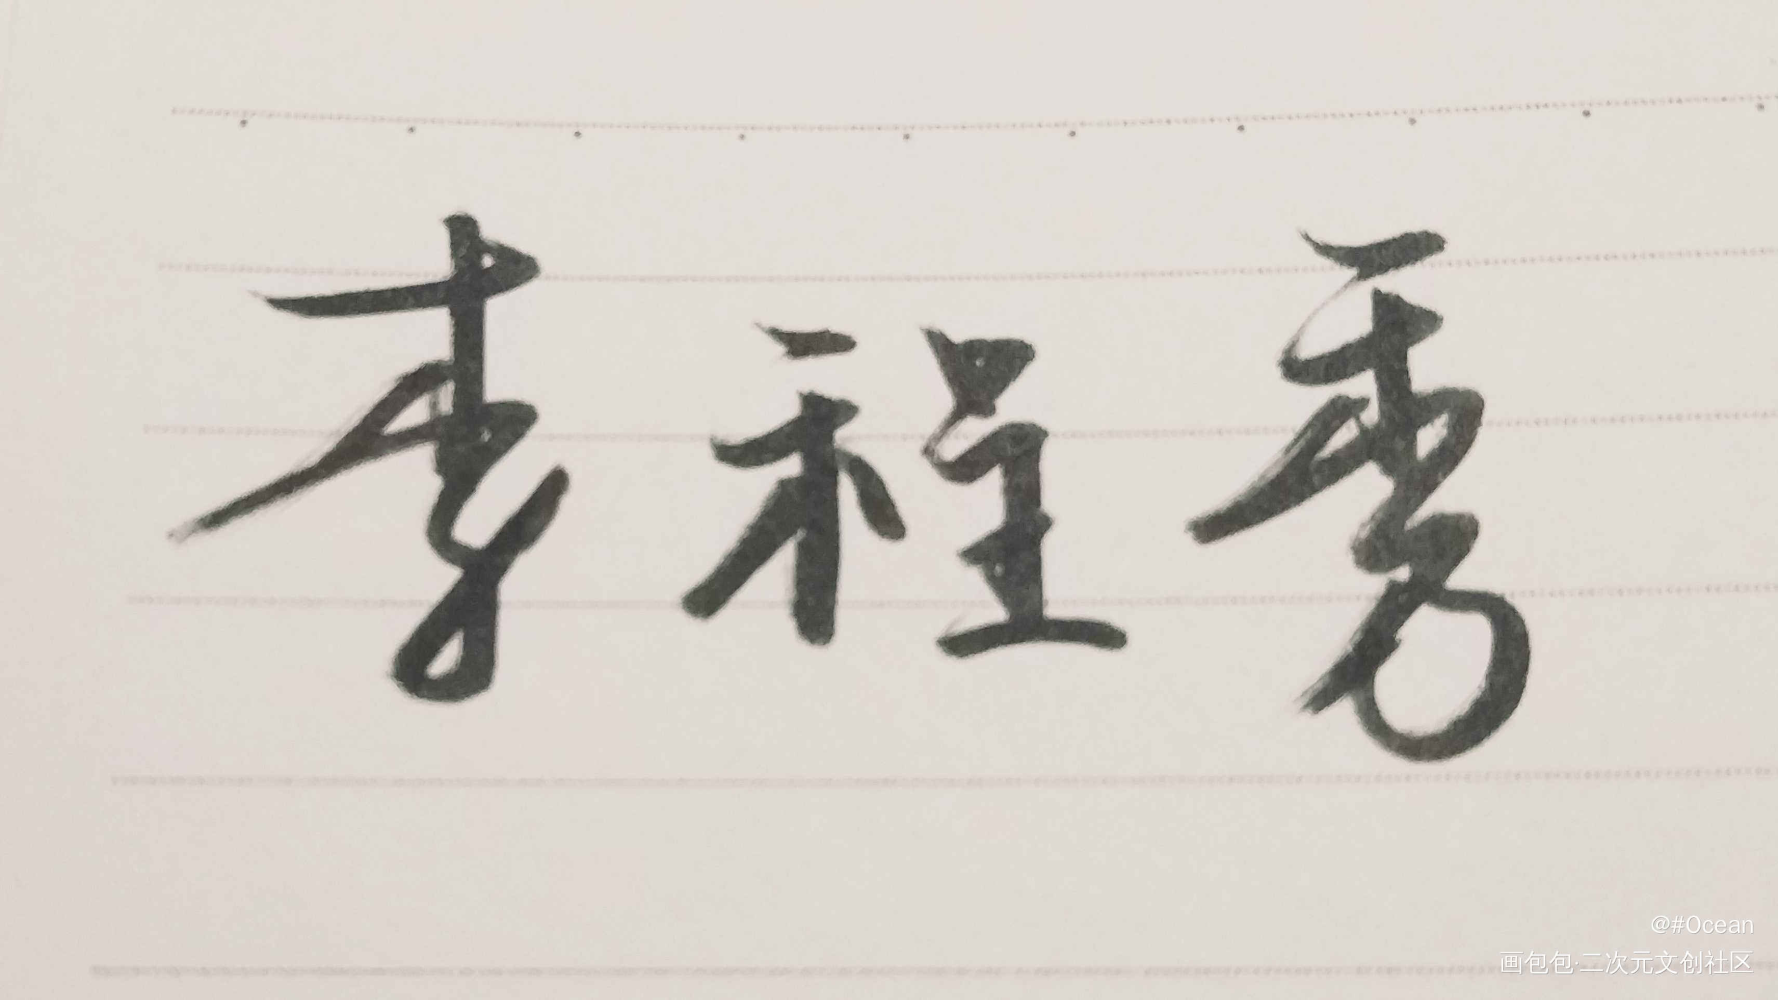 李程秀
@#Ocean
画包包·二次元文创社区